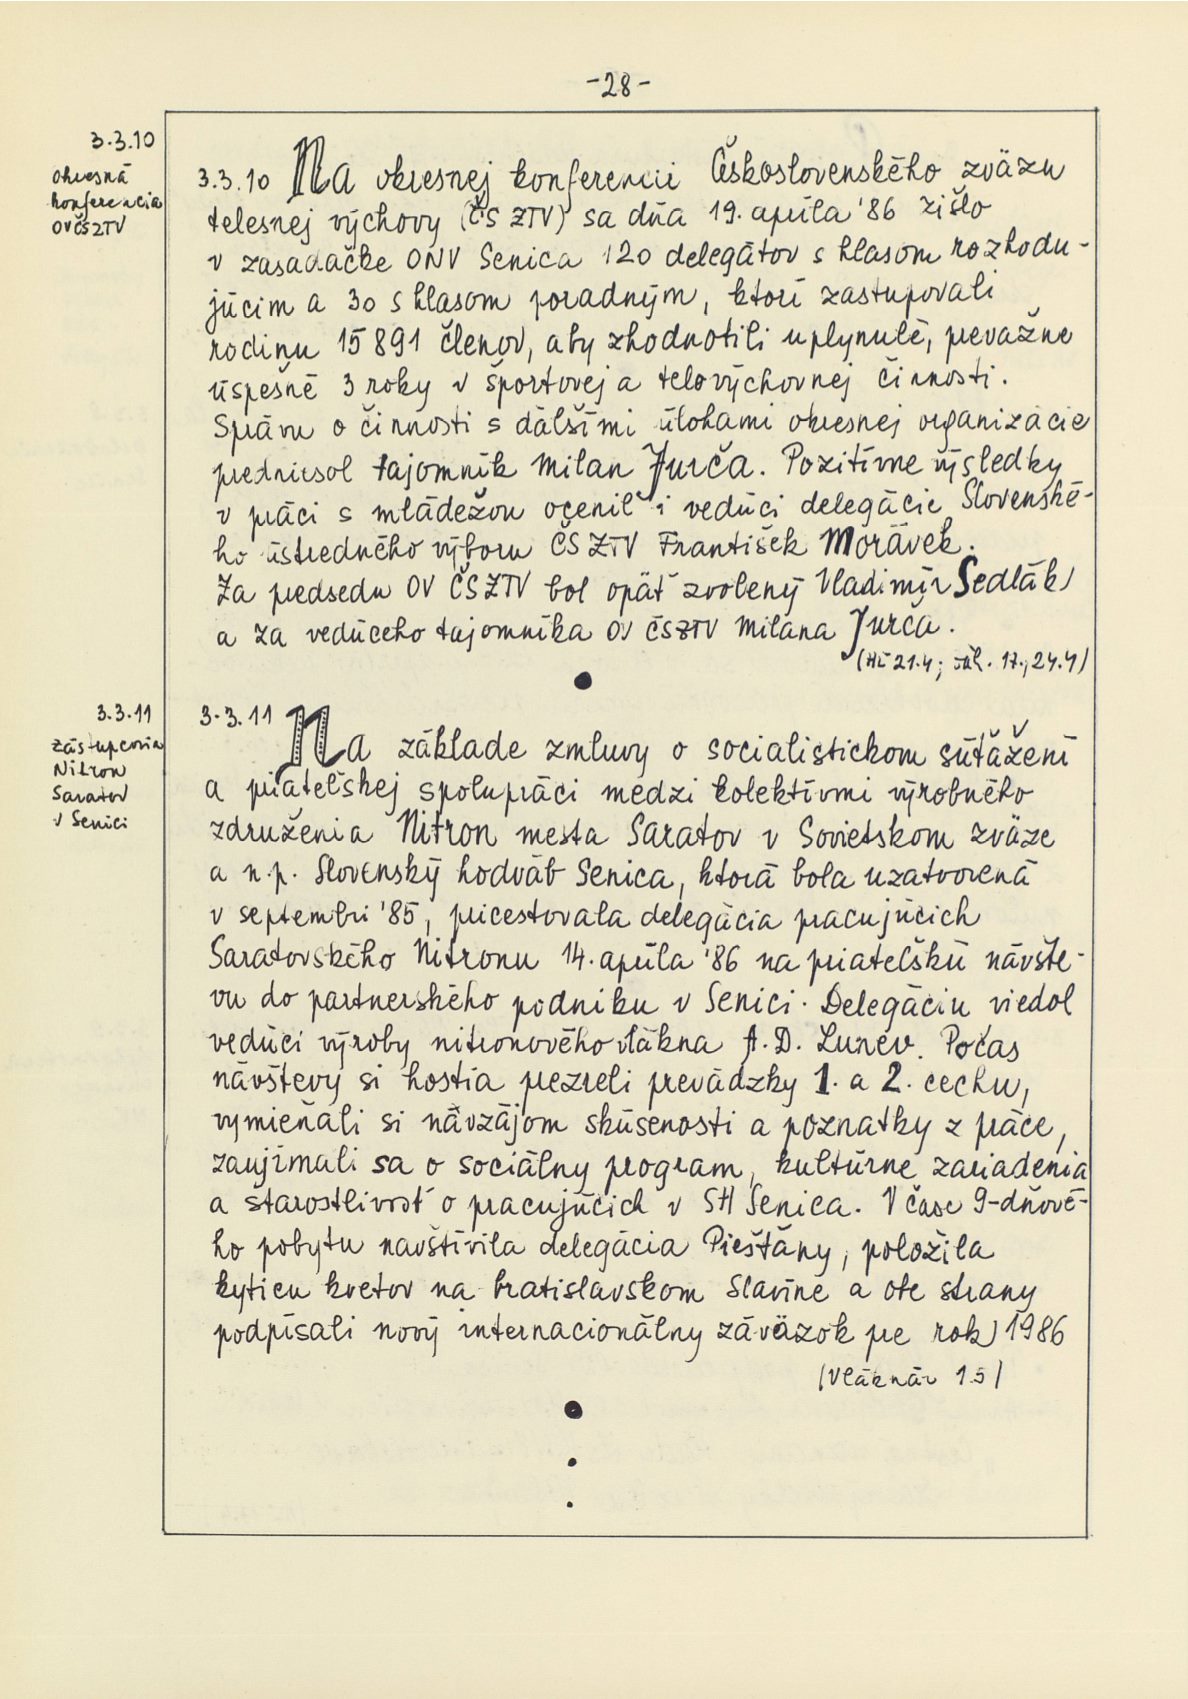 -28-
3.3.10
okresná
konferencia
OVČSZTV
3.3.10 Na okresnej konferencii Československého zväzu
telesnej výchovy (ČSZTV) sa dňa 19. apríla '86 zišlo
v zasadačke ONV Senica 120 delegátov s hlasom rozhodu-
júcim a 30 s hlasom poradným, ktorí zastupovali
rodinu 15 891 členov, aby zhodnotili uplynulé, prevažne
úspešné 3 roky v športovej a telovýchovnej činnosti.
Správu o činnosti s ďalšími úlohami okresnej organizácie
predniesol tajomník Milan Jurča. Pozitívne výsledky
v práci s mládežou ocenil i vedúci delegácie Slovenské-
ho ústredného výboru ČSZTV František Morávek.
Za predsedu OV ČSZTV bol opäť zvolený Vladimír Sedlák
a za vedúceho tajomníka OV ČSZTV Milana Jurča.
(HĽ 21.4; záh. 17., 24.4)
3.3.11
zástupcovia
Nitron
Saratov
v Senici
3.3.11 Na základe zmluvy o socialistickom súťažení
a priateľskej spolupráci medzi kolektívmi výrobného
združenia Nitron mesta Saratov v Sovietskom zväze
a n.p. Slovenský hodváb Senica, ktorá bola uzatvorená
v septembri '85, pricestovala delegácia pracujúcich
Saratovského Nitronu 14. apríla '86 na priateľskú návšte-
vu do partnerského podniku v Senici. Delegáciu viedol
vedúci výroby nitronového vlákna A. D. Lunev. Počas
návštevy si hostia prezreli prevádzky 1. a 2. cechu,
vymieňali si návzájom skúsenosti a poznatky z práce,
zaujímali sa o sociálny program, kultúrne zariadenia
a starostlivosť o pracujúcich v SH Senica. V čase 9-dňové-
ho pobytu navštívila delegácia Piešťány, položila
kyticu kvetov na bratislavskom Slavíne a obe strany
podpísali nový internacionálny záväzok pre rok 1986
(Vláknár 1.5)